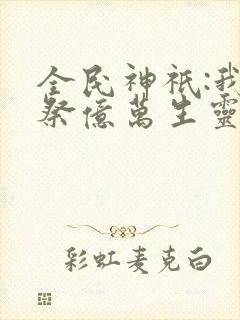 全民神祇:我
祭億萬生靈
彩虹麦克白